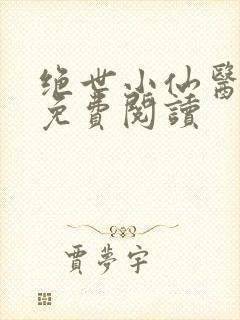 绝世小仙醫
免費閱讀
賈夢宇